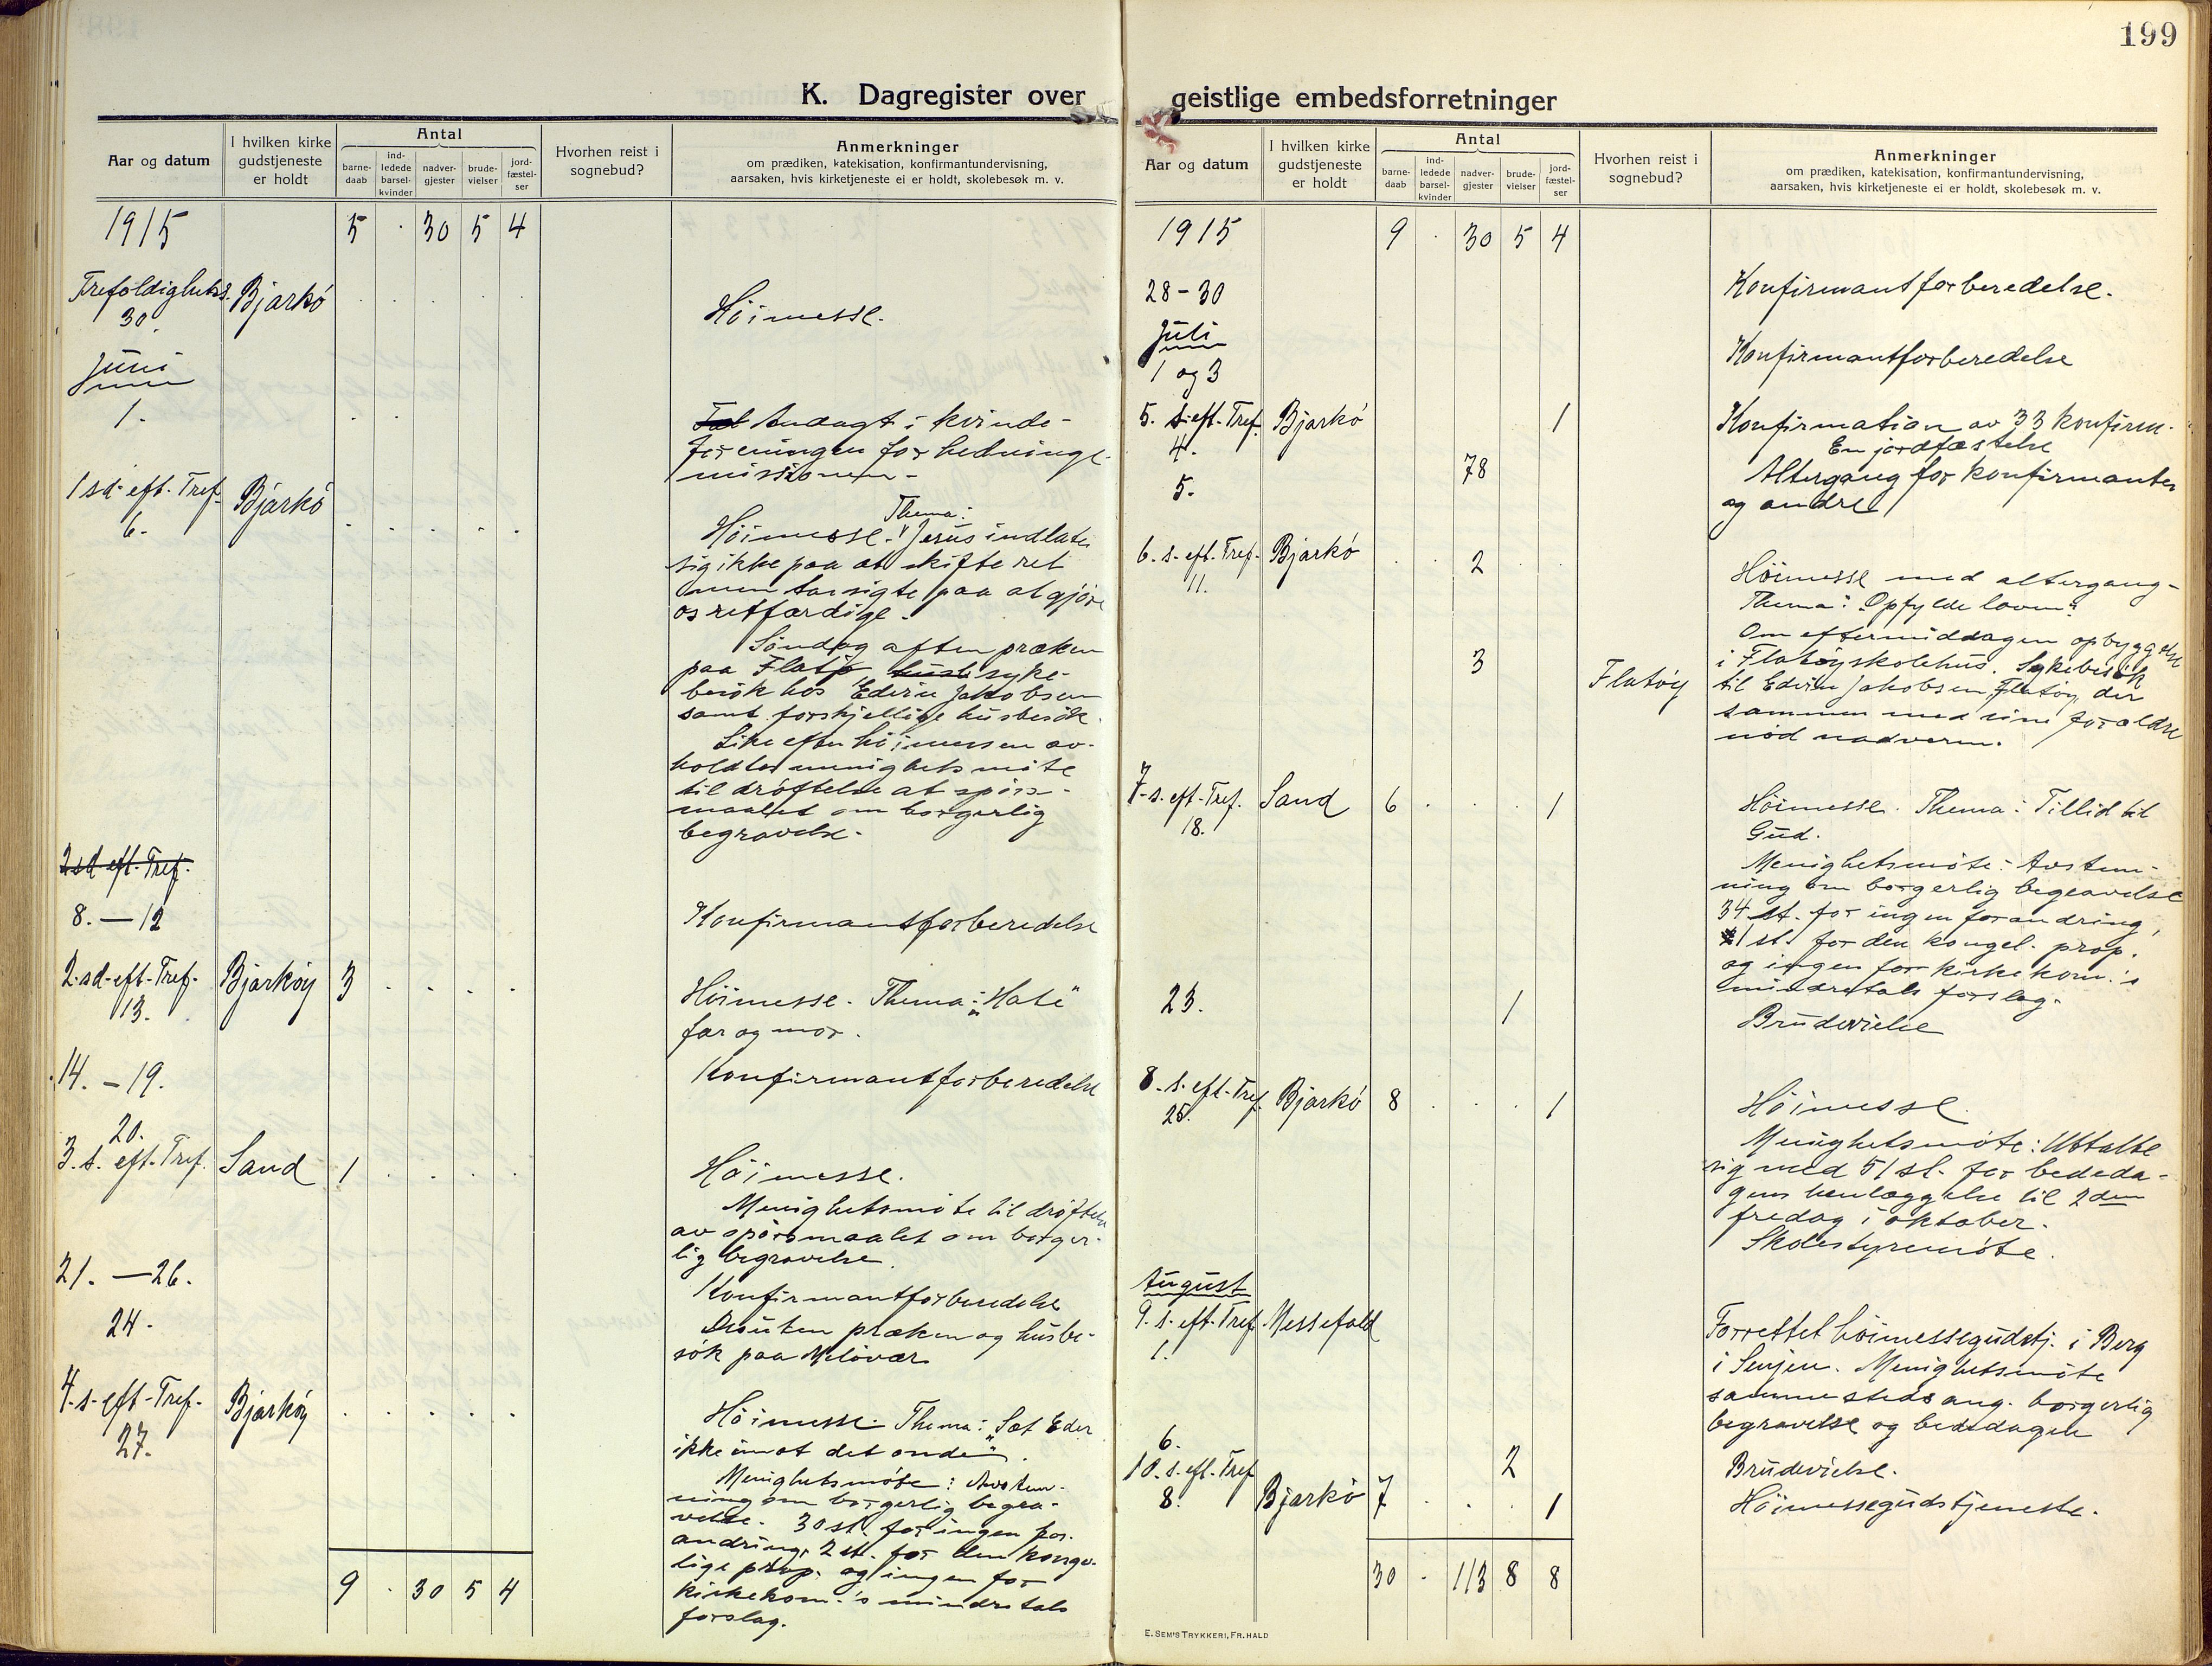 199
K. Dagregister over
Aar og datum
I hvilken kirke gudstjeneste er holdt
Antal
barne-daab
ind-ledede barsel-kvinder
nadver-gjester
brude-vielser
jord-fæstel-ser
Hvorhen reist i sognebud?
Anmerkninger
om prædiken, katekisation, konfirmantundervisning,
aarsaken, hvis kirketjeneste ei er holdt, skolebesøk m. v.
1915 5 · 30 5 4
Trefoldigheds. Bjarkö
30. Höimesse.
Juni
1. Andagt i kvinde-
foreningen for hedninge-
missionen -
1 sd. eft. Tref. Bjarkö
6. Thema:
Höimesse. "Jesus indlater
sig ikke paa at skifte ret
men tar sigte paa at gjöre
os retfærdige.
Söndag aften præken
paa Flatö, syke-
besök hos Edvin Jakobsen
samt forskjellige husbesök.
Like efter höimessen av-
holdtes menighetsmöte
til dröftelse at spörs-
maalet om borgerlig
begravelse.
2 sd. eft. Tref.
8. — 12 Konfirmantforberedelse
2. sd. eft. Tref. Bjarköy 3 · · · ·
13. Höimesse. Thema: "Hate"
far og mor.
14. — 19. Konfirmantforberedelse
20.
3. s. eft. Tref. Sand 1 · · · ·
Höimesse.
Menighetsmöte til dröftelse
av spörsmaalet om borger-
lig begravelse.
21. — 26. Konfirmantforberedelse
24. Desuten præken og husbe-
sök paa Melövær
4. s. eft. Tref. Bjarköy · · · · ·
27. Höimesse. Thema: "Sæt Eder
ikke imot det onde".
Menighetsmöte: Avstem-
ning om borgerlig begra-
velse. 30 st. for ingen for-
andring, 2 st. for den konge-
lige prop. og ingen for
kirkekom.'s mindretals
forslag.
9 · 30 5 4
geistlige embedsforretninger
Aar og datum
I hvilken kirke gudstjeneste er holdt
Antal
barne-daab
ind-ledede barsel-kvinder
nadver-gjester
brude-vielser
jord-fæstel-ser
Hvorhen reist i sognebud?
Anmerkninger
om prædiken, katekisation, konfirmantundervisning,
aarsaken, hvis kirketjeneste ei er holdt, skolebesøk m. v.
1915 9 · 30 5 4
28 - 30 Konfirmantforberedelse.
Juli
1 og 3 Konfirmantforberedelse
5. s. eft. Tref. Bjarkö 1 Konfirmation av 33 konfirm.
4. En jordfæstelse
5. 78 Altergang for konfirmanter
og andre
6. s. eft. Tref. Bjarkö · · 2 · ·
11. Höimesse med altergang -
Thema: "Opfylde loven".
Om eftermiddagen opbyggelse
3 Flatöy i Flatöy skolehus. Sykebesök
til Edvin Jakobsen, Flatöy, der
sammen med sine forældre
nöd nadveren.
7. s. eft. Tref. Sand 6 · · · 1
18. Höimesse. Thema: Tillid til
Gud.
Menighetsmöte: Avstem-
ning om borgerlig begravelse
34 st. for ingen forandring,
1 st. for den kongel. prop.
og ingen for kirkekom.'s
mindretals forslag.
23. 1 Brudevielse
8. s. eft. Tref. Bjarkö 8 · · · 1
25. Höimesse.
Menighetsmöte: Uttalte
sig med 51 st. for bededa-
gens henlæggelse til 2den
fredag i oktober.
Skolestyremöte.
August
9. s. eft. Tref. Messefald
1. Forrettet höimessegudstj. i Berg
i Senjen. Menighetsmöte
sammesteds ang. borgerlig
begravelse og bededagen
6. 2 Brudevielse.
10. s. eft. Tref.
8. Bjarkö 7 · · · 1 Höimessegudstjeneste.
30 · 113 8 8
E. SEM'S TRYKKERI, FR. HALD